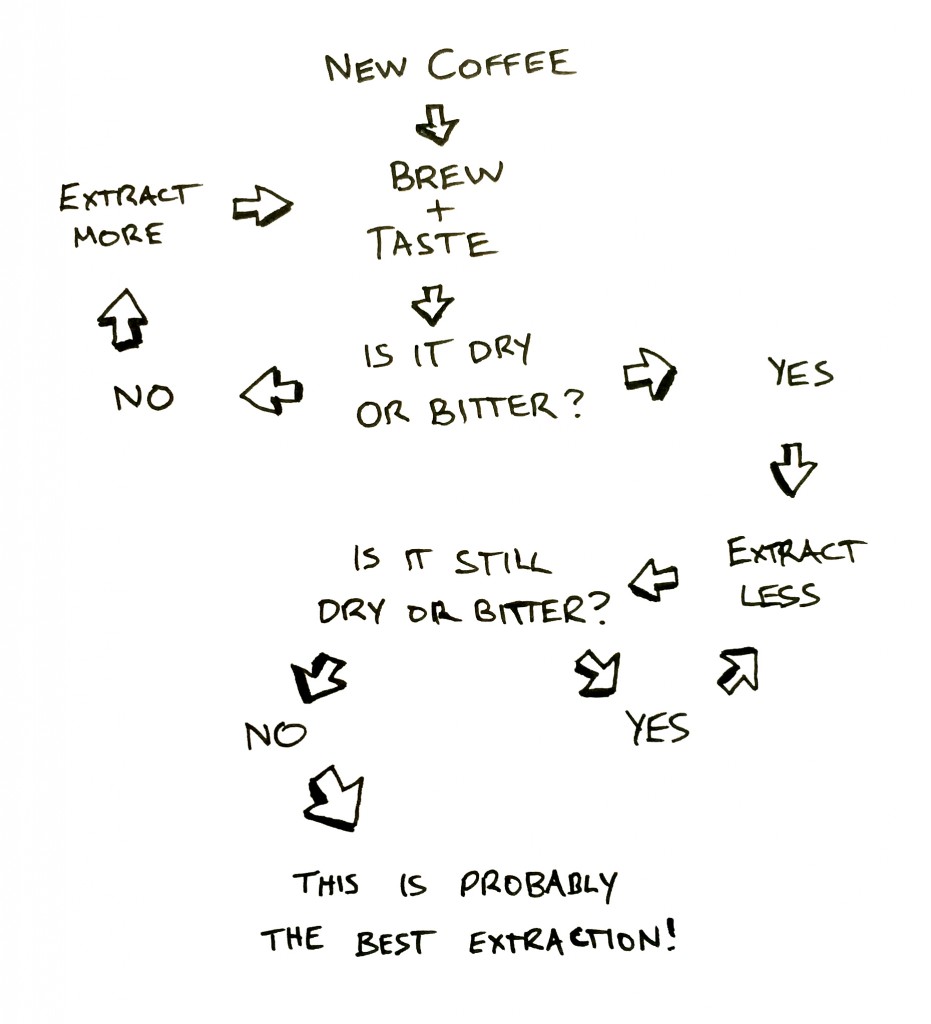 NEW COFFEE
BREW
+
TASTE
EXTRACT
MORE
IS IT DRY
OR BITTER?
NO
YES
EXTRACT
LESS
IS IT STILL
DRY OR BITTER?
NO
YES
THIS IS PROBABLY
THE BEST EXTRACTION!